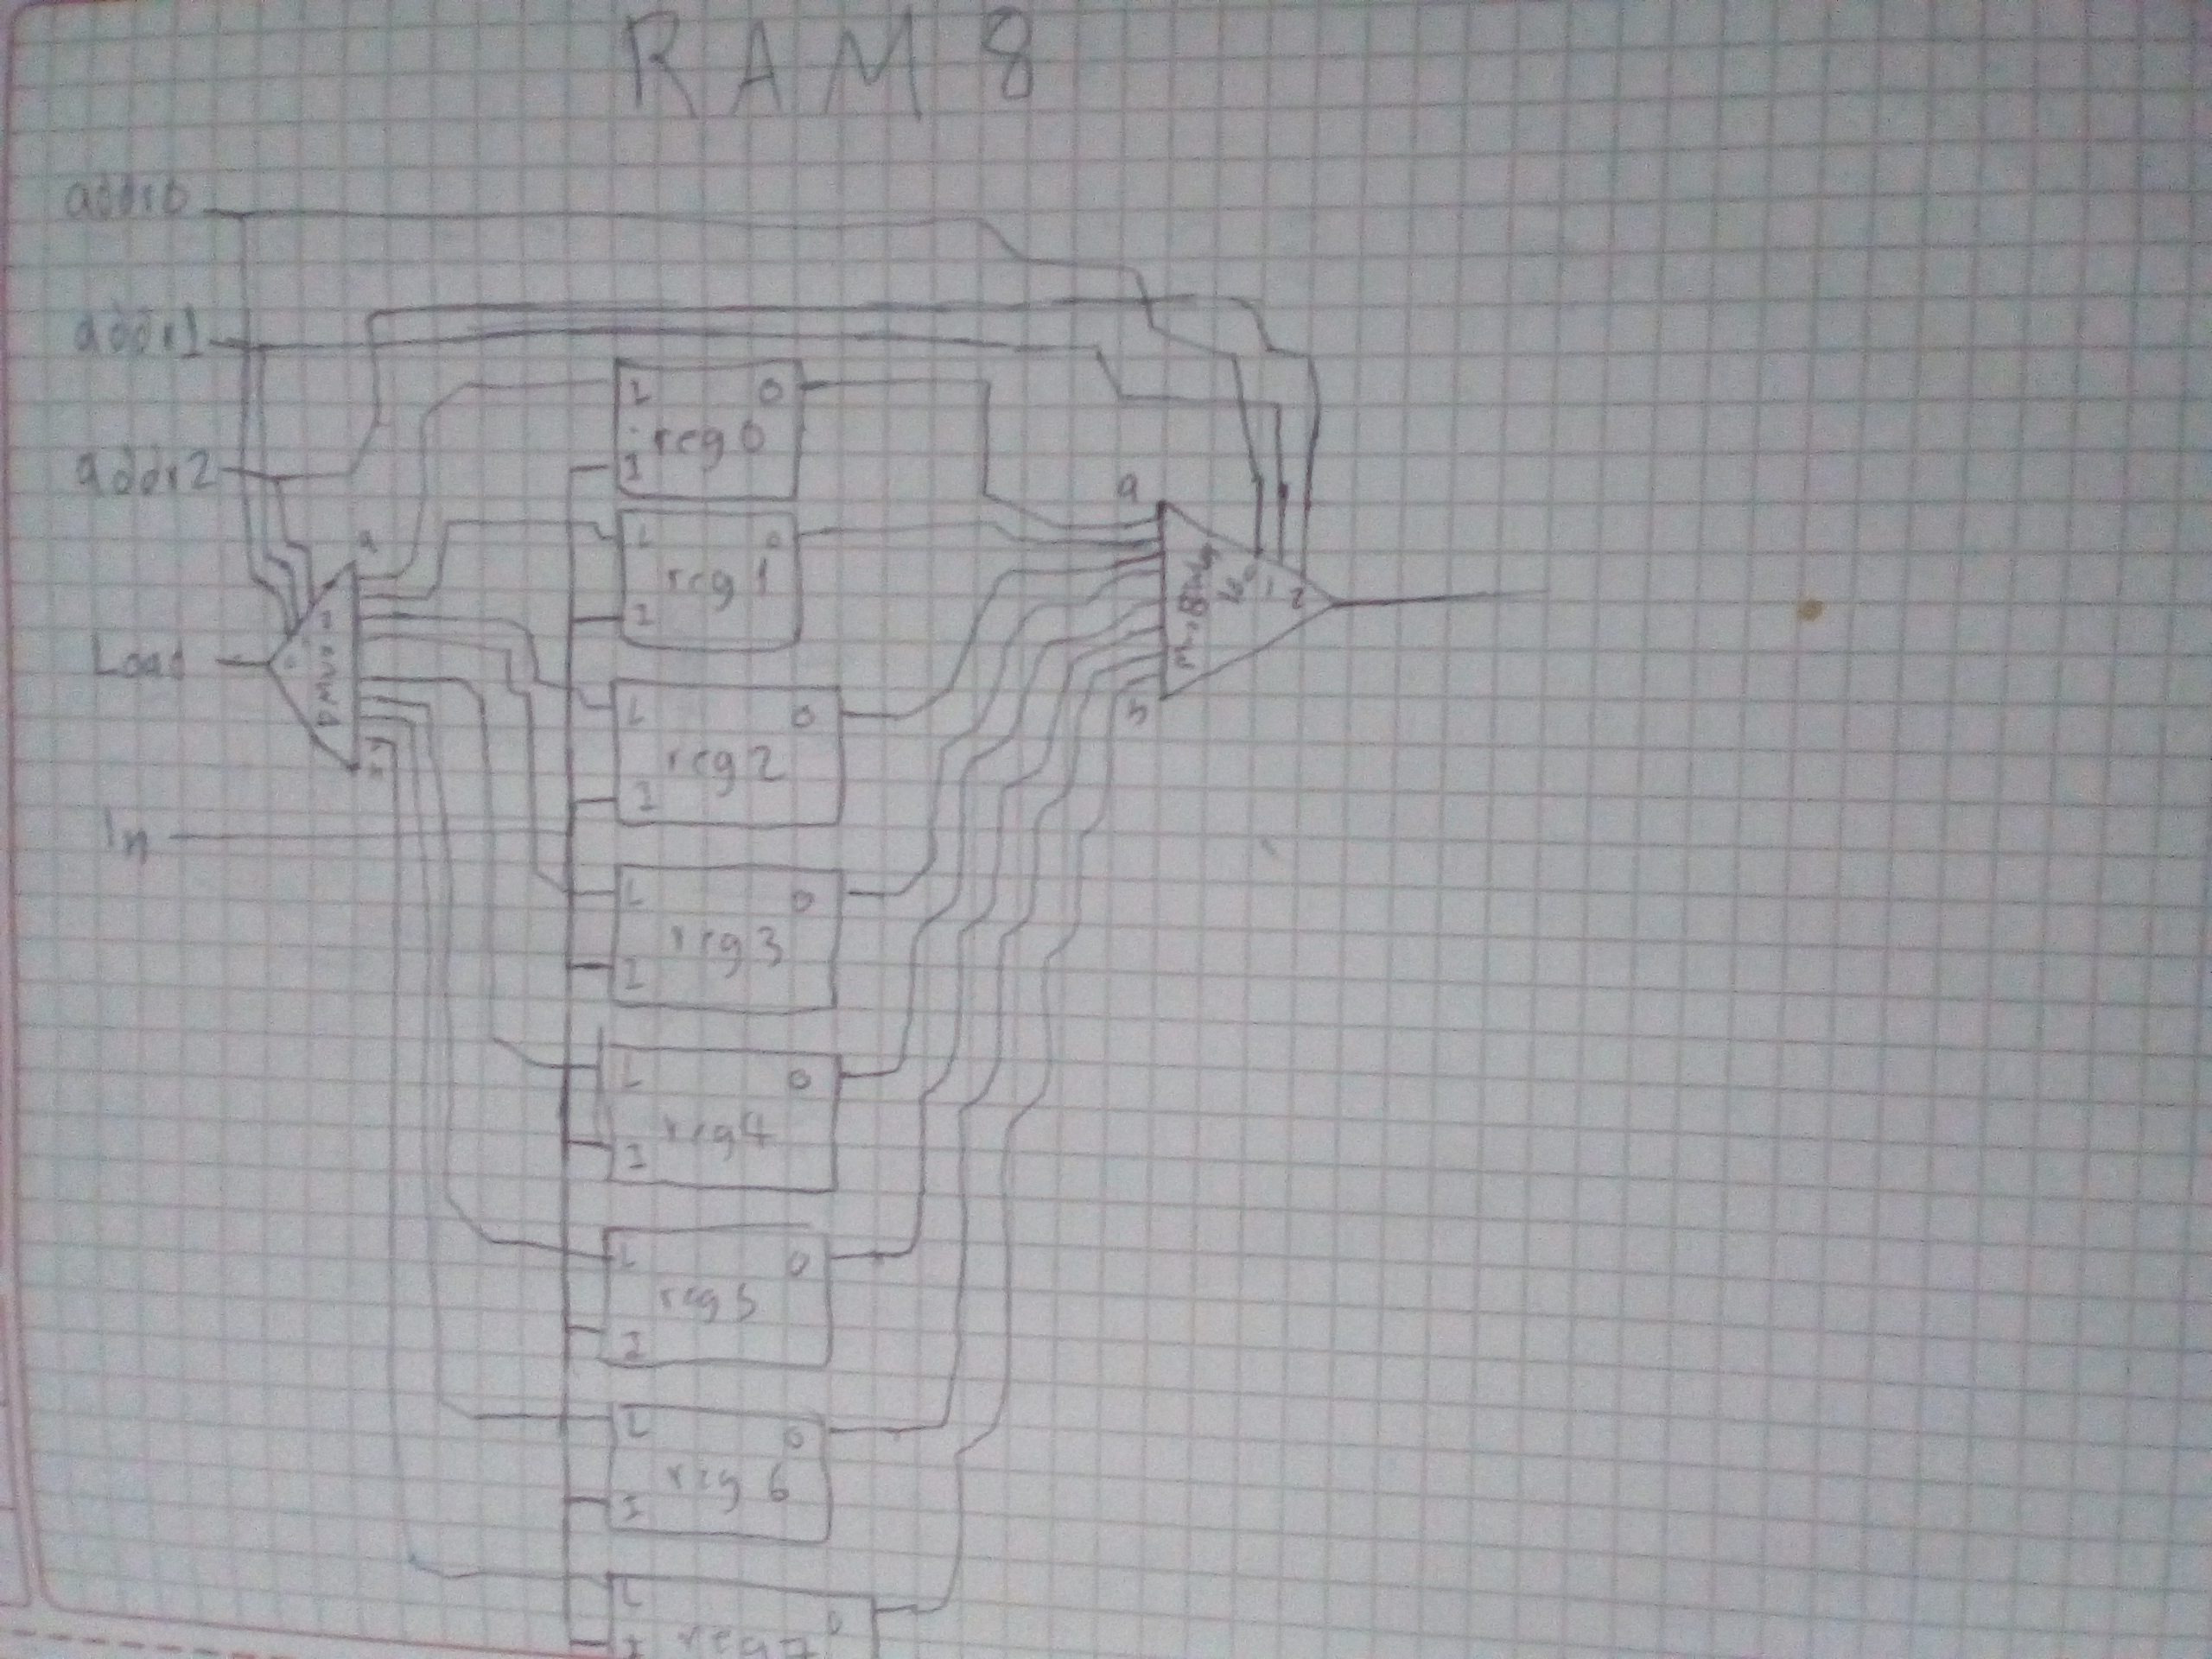 RAM 8
addr0
addr1
addr2
Load
In
a
L O
reg 0
I
L O
reg 1
I
L O
reg 2
I
L O
reg 3
I
L O
reg 4
I
L O
reg 5
I
L O
reg 6
I
L O
reg 7
I
a
0 1 2
h